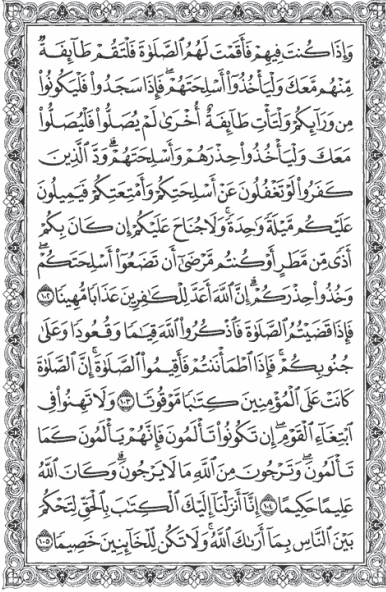 وَإِذَا كُنتَ فِيهِمْ فَأَقَمْتَ لَهُمُ ٱلصَّلَوٰةَ فَلْتَقُمْ طَآئِفَةٌ
مِّنْهُم مَّعَكَ وَلْيَأْخُذُوٓا۟ أَسْلِحَتَهُمْ ۖ فَإِذَا سَجَدُوا۟ فَلْيَكُونُوا۟
مِن وَرَآئِكُمْ وَلْتَأْتِ طَآئِفَةٌ أُخْرَىٰ لَمْ يُصَلُّوا۟ فَلْيُصَلُّوا۟
مَعَكَ وَلْيَأْخُذُوا۟ حِذْرَهُمْ وَأَسْلِحَتَهُمْ ۗ وَدَّ ٱلَّذِينَ
كَفَرُوا۟ لَوْ تَغْفُلُونَ عَنْ أَسْلِحَتِكُمْ وَأَمْتِعَتِكُمْ فَيَمِيلُونَ
عَلَيْكُم مَّيْلَةً وَٰحِدَةً ۚ وَلَا جُنَاحَ عَلَيْكُمْ إِن كَانَ بِكُمْ
أَذًى مِّن مَّطَرٍ أَوْ كُنتُم مَّرْضَىٰٓ أَن تَضَعُوٓا۟ أَسْلِحَتَكُمْ ۖ
وَخُذُوا۟ حِذْرَكُمْ ۗ إِنَّ ٱللَّهَ أَعَدَّ لِلْكَٰفِرِينَ عَذَابًا مُّهِينًا ١٠٢
فَإِذَا قَضَيْتُمُ ٱلصَّلَوٰةَ فَٱذْكُرُوا۟ ٱللَّهَ قِيَٰمًا وَقُعُودًا وَعَلَىٰ
جُنُوبِكُمْ ۚ فَإِذَا ٱطْمَأْنَنتُمْ فَأَقِيمُوا۟ ٱلصَّلَوٰةَ ۚ إِنَّ ٱلصَّلَوٰةَ
كَانَتْ عَلَى ٱلْمُؤْمِنِينَ كِتَٰبًا مَّوْقُوتًا ١٠٣ وَلَا تَهِنُوا۟ فِى
ٱبْتِغَآءِ ٱلْقَوْمِ ۖ إِن تَكُونُوا۟ تَأْلَمُونَ فَإِنَّهُمْ يَأْلَمُونَ كَمَا
تَأْلَمُونَ ۖ وَتَرْجُونَ مِنَ ٱللَّهِ مَا لَا يَرْجُونَ ۗ وَكَانَ ٱللَّهُ
عَلِيمًا حَكِيمًا ١٠٤ إِنَّآ أَنزَلْنَآ إِلَيْكَ ٱلْكِتَٰبَ بِٱلْحَقِّ لِتَحْكُمَ
بَيْنَ ٱلنَّاسِ بِمَآ أَرَىٰكَ ٱللَّهُ ۚ وَلَا تَكُن لِّلْخَآئِنِينَ خَصِيمًا ١٠٥